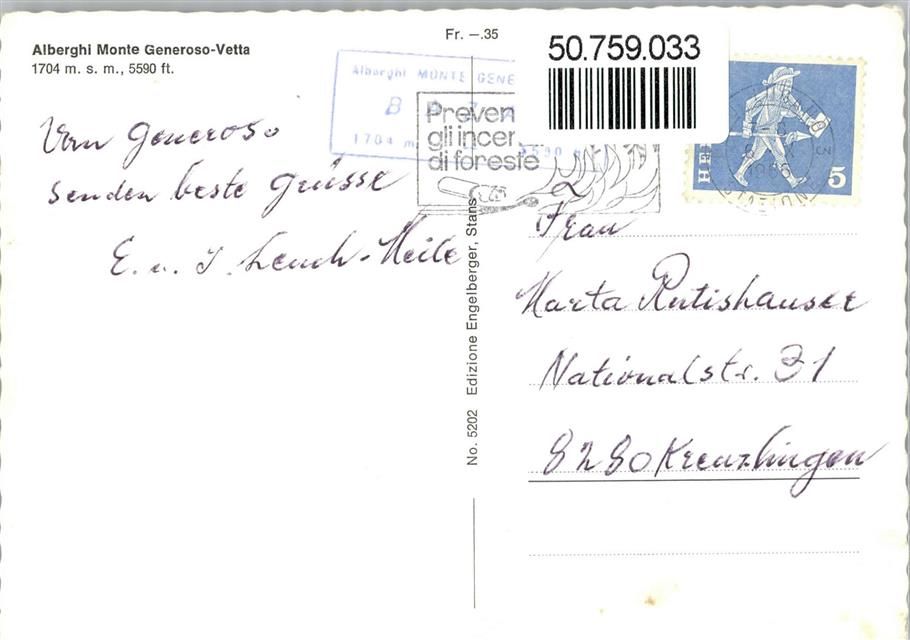 Alberghi Monte Generoso-Vetta
1704 m. s. m., 5590 ft.
Fr. –.35
50.759.033
Alberghi MONTE GENE
1704 m
5590
Preven
gli incen
di foreste
HE
5
1966
Vom Generoso
senden beste Grüsse
E. u. J. Leuch-Meile
No. 5202 Edizione Engelberger, Stans
Frau
Marta Rutishauser
Nationalstr. 31
8280 Kreuzlingen